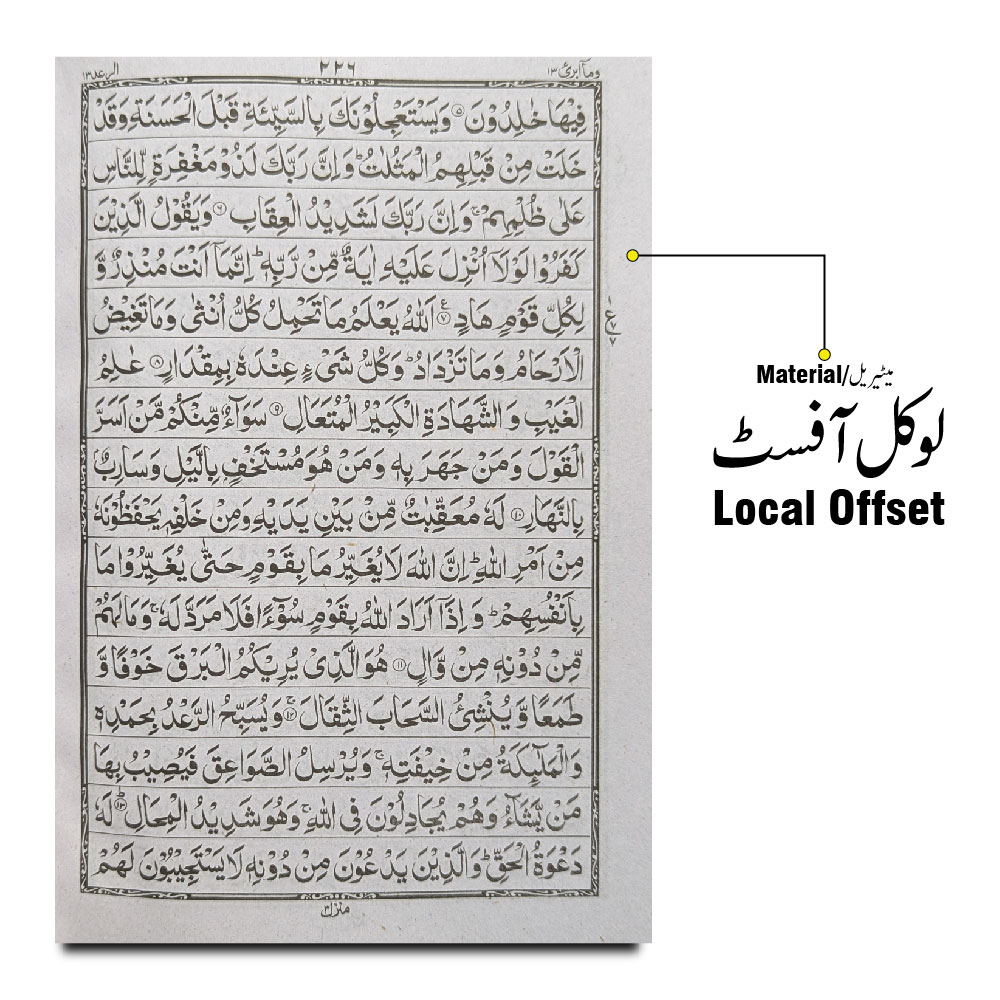 وما أبرئ ۱۳ ۲۲٦ الرعد ۱۳
فِيْهَا خٰلِدُوْنَ ۝۵ وَيَسْتَعْجِلُوْنَكَ بِالسَّيِّئَةِ قَبْلَ الْحَسَنَةِ وَقَدْ
خَلَتْ مِنْ قَبْلِهِمُ الْمَثُلٰتُ ؕ وَاِنَّ رَبَّكَ لَذُوْ مَغْفِرَةٍ لِّلنَّاسِ
عَلٰى ظُلْمِهِمْ ۚ وَاِنَّ رَبَّكَ لَشَدِيْدُ الْعِقَابِ ۝۶ وَيَقُوْلُ الَّذِيْنَ
كَفَرُوْا لَوْلَاۤ اُنْزِلَ عَلَيْهِ اٰيَةٌ مِّنْ رَّبِّهٖ ؕ اِنَّمَاۤ اَنْتَ مُنْذِرٌ وَّ
لِكُلِّ قَوْمٍ هَادٍ ۝۷ اَللّٰهُ يَعْلَمُ مَا تَحْمِلُ كُلُّ اُنْثٰى وَمَا تَغِيْضُ
الْاَرْحَامُ وَمَا تَزْدَادُ ؕ وَكُلُّ شَيْءٍ عِنْدَهٗ بِمِقْدَارٍ ۝۸ عٰلِمُ
الْغَيْبِ وَالشَّهَادَةِ الْكَبِيْرُ الْمُتَعَالِ ۝۹ سَوَآءٌ مِّنْكُمْ مَّنْ اَسَرَّ
الْقَوْلَ وَمَنْ جَهَرَ بِهٖ وَمَنْ هُوَ مُسْتَخْفٍۭ بِالَّيْلِ وَسَارِبٌۢ
بِالنَّهَارِ ۝۱۰ لَهٗ مُعَقِّبٰتٌ مِّنْۢ بَيْنِ يَدَيْهِ وَمِنْ خَلْفِهٖ يَحْفَظُوْنَهٗ
مِنْ اَمْرِ اللّٰهِ ؕ اِنَّ اللّٰهَ لَا يُغَيِّرُ مَا بِقَوْمٍ حَتّٰى يُغَيِّرُوْا مَا
بِاَنْفُسِهِمْ ؕ وَاِذَاۤ اَرَادَ اللّٰهُ بِقَوْمٍ سُوْٓءًا فَلَا مَرَدَّ لَهٗ ۚ وَمَا لَهُمْ
مِّنْ دُوْنِهٖ مِنْ وَّالٍ ۝۱۱ هُوَ الَّذِيْ يُرِيْكُمُ الْبَرْقَ خَوْفًا وَّ
طَمَعًا وَّيُنْشِئُ السَّحَابَ الثِّقَالَ ۝۱۲ وَيُسَبِّحُ الرَّعْدُ بِحَمْدِهٖ
وَالْمَلٰٓئِكَةُ مِنْ خِيْفَتِهٖ ۚ وَيُرْسِلُ الصَّوَاعِقَ فَيُصِيْبُ بِهَا
مَنْ يَّشَآءُ وَهُمْ يُجَادِلُوْنَ فِي اللّٰهِ ۚ وَهُوَ شَدِيْدُ الْمِحَالِ ۝۱۳ لَهٗ
دَعْوَةُ الْحَقِّ ؕ وَالَّذِيْنَ يَدْعُوْنَ مِنْ دُوْنِهٖ لَا يَسْتَجِيْبُوْنَ لَهُمْ
منزل ۳
Material/میٹیریل
لوکل آفسٹ
Local Offset